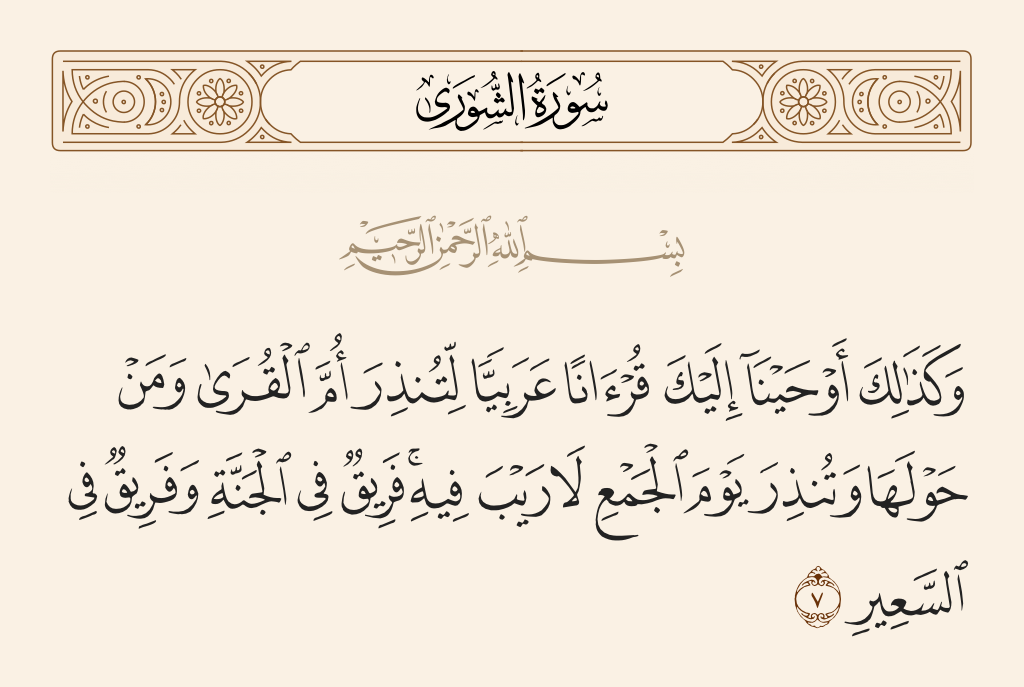 سُورَةُ الشُّورَىٰ
بِسْمِ ٱللَّهِ ٱلرَّحْمَٰنِ ٱلرَّحِيمِ
وَكَذَٰلِكَ أَوْحَيْنَآ إِلَيْكَ قُرْءَانًا عَرَبِيًّا لِّتُنذِرَ أُمَّ ٱلْقُرَىٰ وَمَنْ
حَوْلَهَا وَتُنذِرَ يَوْمَ ٱلْجَمْعِ لَا رَيْبَ فِيهِ ۚ فَرِيقٌ فِى ٱلْجَنَّةِ وَفَرِيقٌ فِى
ٱلسَّعِيرِ ٧